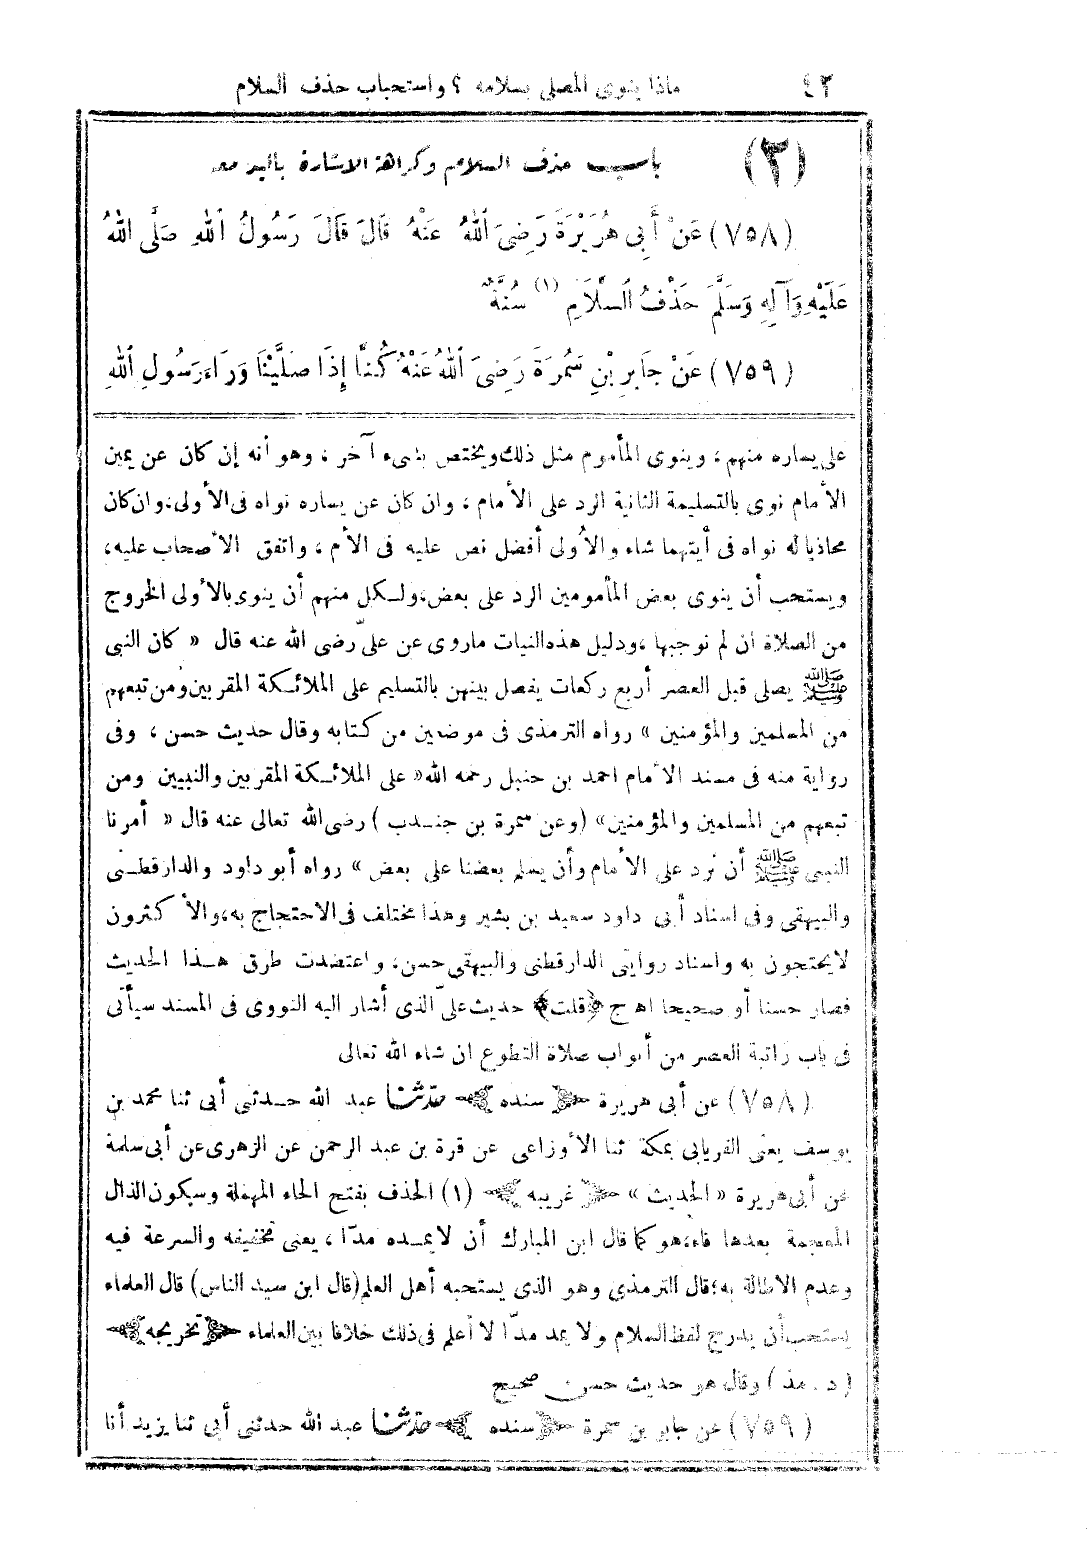 ٤٢ ماذا ينوى المصلى بسلامه ؟ واستحباب حذف السلام
(٣) باب حذف السلام وكراهة الاشارة باليد معه
(٧٥٨) عَنْ أَبِى هُرَيْرَةَ رَضِىَ اللهُ عَنْهُ قَالَ قَالَ رَسُولُ اللهِ صَلَّى اللهُ
عَلَيْهِ وَآلِهِ وَسَلَّمَ حَذْفُ السَّلَامِ (١) سُنَّةٌ
(٧٥٩) عَنْ جَابِرِ بْنِ سَمُرَةَ رَضِىَ اللهُ عَنْهُ كُنَّا إِذَا صَلَّيْنَا وَرَاءَ رَسُولِ اللهِ
على يساره منهم ، وينوى المأموم مثل ذلك ويختص بشىء آخر ، وهو أنه إن كان عن يمين
الأمام نوى بالتسليمة الثانية الرد على الأمام ، وان كان عن يساره نواه فى الأولى، وان كان
محاذيا له نواه فى أيتهما شاء والأولى أفضل نص عليه فى الأم ، واتفق الأصحاب عليه،
ويستحب أن ينوى بعض المأمومين الرد على بعض، ولكل منهم أن ينوى بالأولى الخروج
من الصلاة ان لم نوجبها ، ودليل هذه النيات ماروى عن علىّ رضى الله عنه قال « كان النبى
ﷺ يصلى قبل العصر أربع ركعات يفصل بينهن بالتسليم على الملائكة المقربين ومن تبعهم
من المسلمين والمؤمنين » رواه الترمذى فى موضعين من كتابه وقال حديث حسن ، وفى
رواية منه فى مسند الأمام احمد بن حنبل رحمه الله « على الملائكة المقربين والنبيين ومن
تبعهم من المسلمين والمؤمنين» (وعن سمرة بن جندب ) رضى الله تعالى عنه قال « أمرنا
النبى ﷺ أن نرد على الأمام وأن يسلم بعضنا على بعض » رواه أبو داود والدارقطنى
والبيهقى وفى اسناد أبى داود سعيد بن بشير وهذا مختلف فى الاحتجاج به، والأكثرون
لا يحتجون به واسناد روايتى الدارقطنى والبيهقى حسن، واعتضدت طرق هذا الحديث
فصار حسنا أو صحيحا اه ج ﴿قلت﴾ حديث علىّ الذى أشار اليه النووى فى المسند سيأتى
فى باب راتبة العصر من أبواب صلاة التطوع ان شاء الله تعالى
(٧٥٨) عن أبى هريرة ﴿سنده﴾ حدثنا عبد الله حدثنى أبى ثنا محمد بن
يوسف يعنى الفريابى بمكة ثنا الأوزاعى عن قرة بن عبد الرحمن عن الزهرى عن أبى سلمة
عن أبى هريرة « الحديث » ﴿غريبه﴾ (١) الحذف بفتح الحاء المهملة وسكون الذال
المعجمة بعدها فاء، هو كما قال ابن المبارك أن لا يمده مدّا ، يعنى تخفيفه والسرعة فيه
وعدم الاطالة به؛ قال الترمذى وهو الذى يستحبه أهل العلم (قال ابن سيد الناس) قال العلماء
يستحب أن يدرج لفظ السلام ولا يمد مدّا لا أعلم فى ذلك خلافا بين العلماء ﴿تخريجه﴾
(د . مذ ) وقال هو حديث حسن صحيح
(٧٥٩) عن جابر بن سمرة ﴿سنده﴾ حدثنا عبد الله حدثنى أبى ثنا يزيد أنا